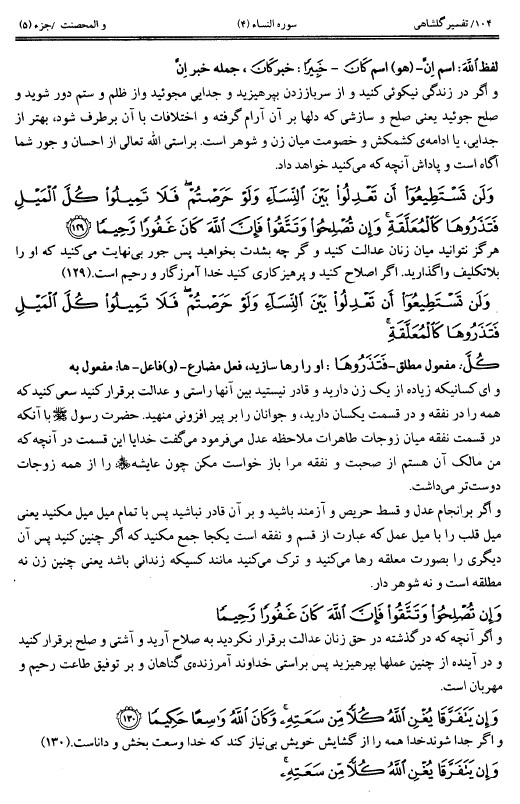 ۱۰۴/ تفسیر گلشاهی سوره النساء (۴) و المحصنت /جزء (۵)
لفظ اللَّهَ: اسم اِنّ- (هو) اسم کَانَ - خَبِیرًا : خبر کان ، جمله خبر اِنّ
و اگر در زندگی نیکوئی کنید و از سرباز زدن بپرهیزید و جدایی مجوئید واز ظلم و ستم دور شوید و
صلح جوئید یعنی صلح و سازشی که دلها بر آن آرام گرفته و اختلافات با آن برطرف شود، بهتر از
جدایی، یا ادامه‌ی کشمکش و خصومت میان زن و شوهر است. براستی الله تعالی از احسان و جور شما
آگاه است و پاداش آنچه که می‌کنید خواهد داد.
وَلَن تَسْتَطِيعُوٓا۟ أَن تَعْدِلُوا۟ بَيْنَ ٱلنِّسَآءِ وَلَوْ حَرَصْتُمْ ۖ فَلَا تَمِيلُوا۟ كُلَّ ٱلْمَيْلِ
فَتَذَرُوهَا كَٱلْمُعَلَّقَةِ ۚ وَإِن تُصْلِحُوا۟ وَتَتَّقُوا۟ فَإِنَّ ٱللَّهَ كَانَ غَفُورًا رَّحِيمًا ۝١٢٩
هرگز نتوانید میان زنان عدالت کنید و گر چه بشدت بخواهید پس جور بی‌نهایت می‌کنید که او را
بلاتکلیف واگذارید. اگر اصلاح کنید و پرهیزکاری کنید خدا آمرزگار و رحیم است.(۱۲۹)
وَلَن تَسْتَطِيعُوٓا۟ أَن تَعْدِلُوا۟ بَيْنَ ٱلنِّسَآءِ وَلَوْ حَرَصْتُمْ ۖ فَلَا تَمِيلُوا۟ كُلَّ ٱلْمَيْلِ
فَتَذَرُوهَا كَٱلْمُعَلَّقَةِ ۚ
كُلَّ: مفعول مطلق-فَتَذَرُوهَا : او را رها سازید، فعل مضارع- (و)فاعل- ها: مفعول به
و ای کسانیکه زیاده از یک زن دارید و قادر نیستید بین آنها راستی و عدالت برقرار کنید سعی کنید که
همه را در نفقه و در قسمت یکسان دارید، و جوانان را بر پیر افزونی منهید. حضرت رسول ﷺ با آنکه
در قسمت نفقه میان زوجات طاهرات ملاحظه عدل می‌فرمود می‌گفت خدایا این قسمت در آنچه که
من مالک آن هستم از صحبت و نفقه مرا باز خواست مکن چون عایشه را از همه زوجات
دوست‌تر می‌داشت.
و اگر برانجام عدل و قسط حریص و آزمند باشید و بر آن قادر نباشید پس با تمام میل میل مکنید یعنی
میل قلب را با میل عمل که عبارت از قسم و نفقه است یکجا جمع مکنید که اگر چنین کنید پس آن
دیگری را بصورت معلقه رها می‌کنید و ترک می‌کنید مانند کسیکه زندانی باشد یعنی چنین زن نه
مطلقه است و نه شوهر دار.
وَإِن تُصْلِحُوا۟ وَتَتَّقُوا۟ فَإِنَّ ٱللَّهَ كَانَ غَفُورًا رَّحِيمًا
و اگر آنچه که در گذشته در حق زنان عدالت برقرار نکردید به صلاح آرید و آشتی و صلح برقرار کنید
و در آینده از چنین عملها بپرهیزید پس براستی خداوند آمرزنده‌ی گناهان و بر توفیق طاعت رحیم و
مهربان است.
وَإِن يَتَفَرَّقَا يُغْنِ ٱللَّهُ كُلًّا مِّن سَعَتِهِۦ ۚ وَكَانَ ٱللَّهُ وَٰسِعًا حَكِيمًا ۝١٣٠
و اگر جدا شوند خدا همه را از گشایش خویش بی‌نیاز کند که خدا وسعت بخش و داناست.(۱۳۰)
وَإِن يَتَفَرَّقَا يُغْنِ ٱللَّهُ كُلًّا مِّن سَعَتِهِۦ ۚ